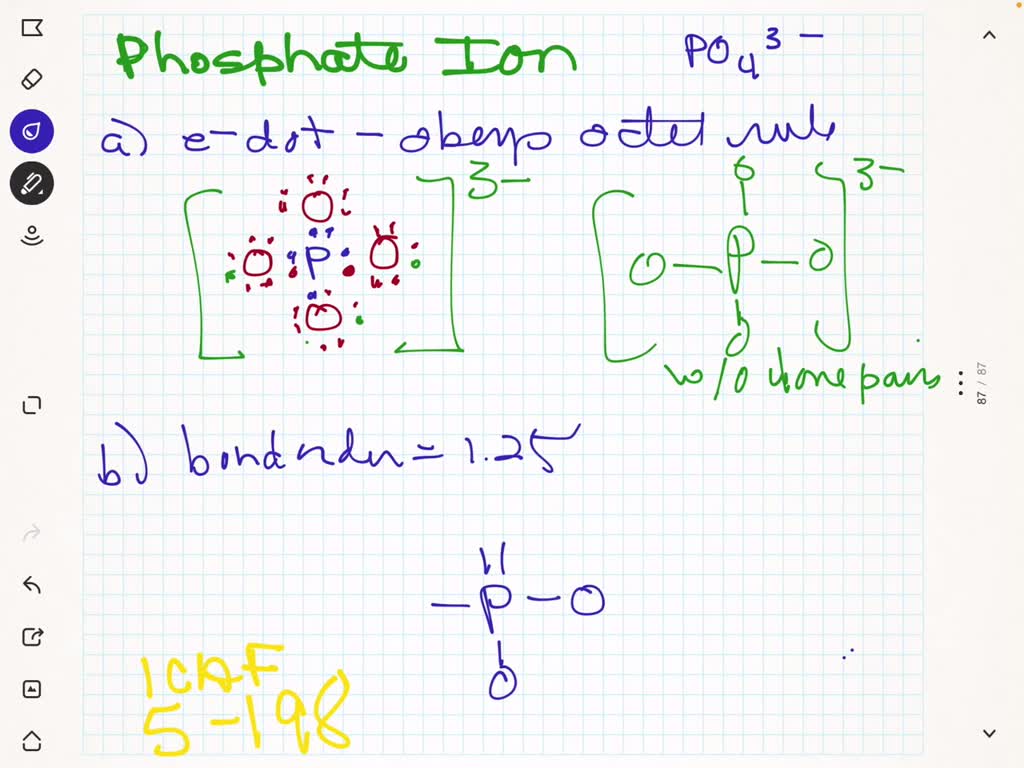 Phosphate Ion PO₄³⁻
a) e-dot - obeys octet rule
3-
O
O P O
O
3-
O
O-P-O
O
w/o lone pairs
b) bond order = 1.25
-P-O
O
ICAF
5-198
87 / 87